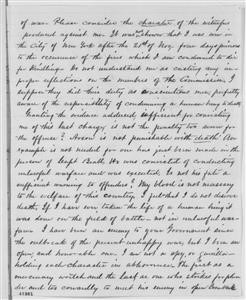 of war. Please consider the character of the witnesses
produced against me. It was shown that I was now in
the City of New York after the 28th of Nov. four days previous
to the occurrence of the fires which I am condemned to die
for kindling. Do not understand me as casting any im
proper reflections on the members of the Commission, I
suppose they did their duty as conscientious men properly
aware of the responsibility of condemning a human being to death
Granting the evidence adduced sufficient for convicting
me of this last charge is not the penalty too severe for
the offense? Arson is not punishable with death. An
example is not needed for one has just been made in the
person of Capt Beall. He was convicted of conducting
unlawful warfare and was executed. Is not his fate a
sufficient warning to offenders? My blood is not necessary
to the welfare of this country. I feel that I do not deserve
death. If I have ever taken the life of a human being it
was done on the field of battle - not in unlawful war-
fare. I have been an enemy to your Government since
the outbreak of the present unhappy war but I have been an
open and honorable one. I am not a spy, or guerilla -
holding each character in abhorrence. The first as a
mercenary wretch and the last as one who
and too cowardly to meet his enemy in open
41981